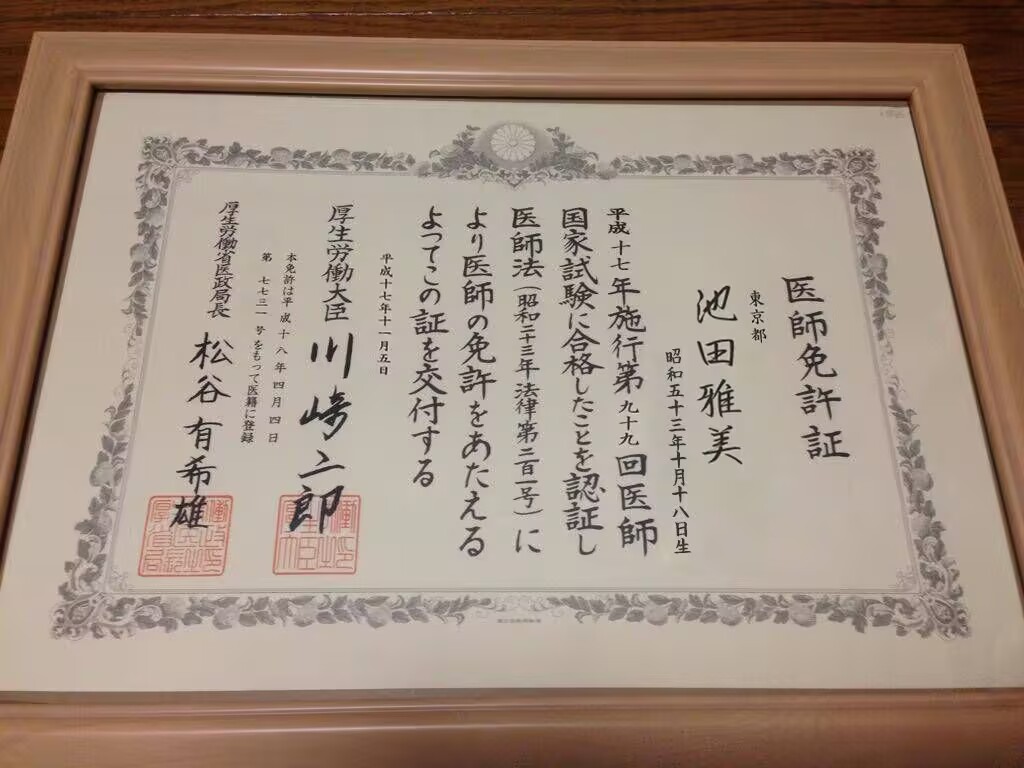 医師免許証
東京都
池田雅美
昭和五十三年十月十八日生
平成十七年施行第九十九回医師
国家試験に合格したことを認証し
医師法(昭和二十三年法律第二百一号)に
より医師の免許をあたえる
よってこの証を交付する
平成十七年十一月五日
厚生労働大臣 川崎二郎
本免許は平成十八年四月四日
第 七七三一 号をもって医籍に登録
厚生労働省医政局長 松谷有希雄